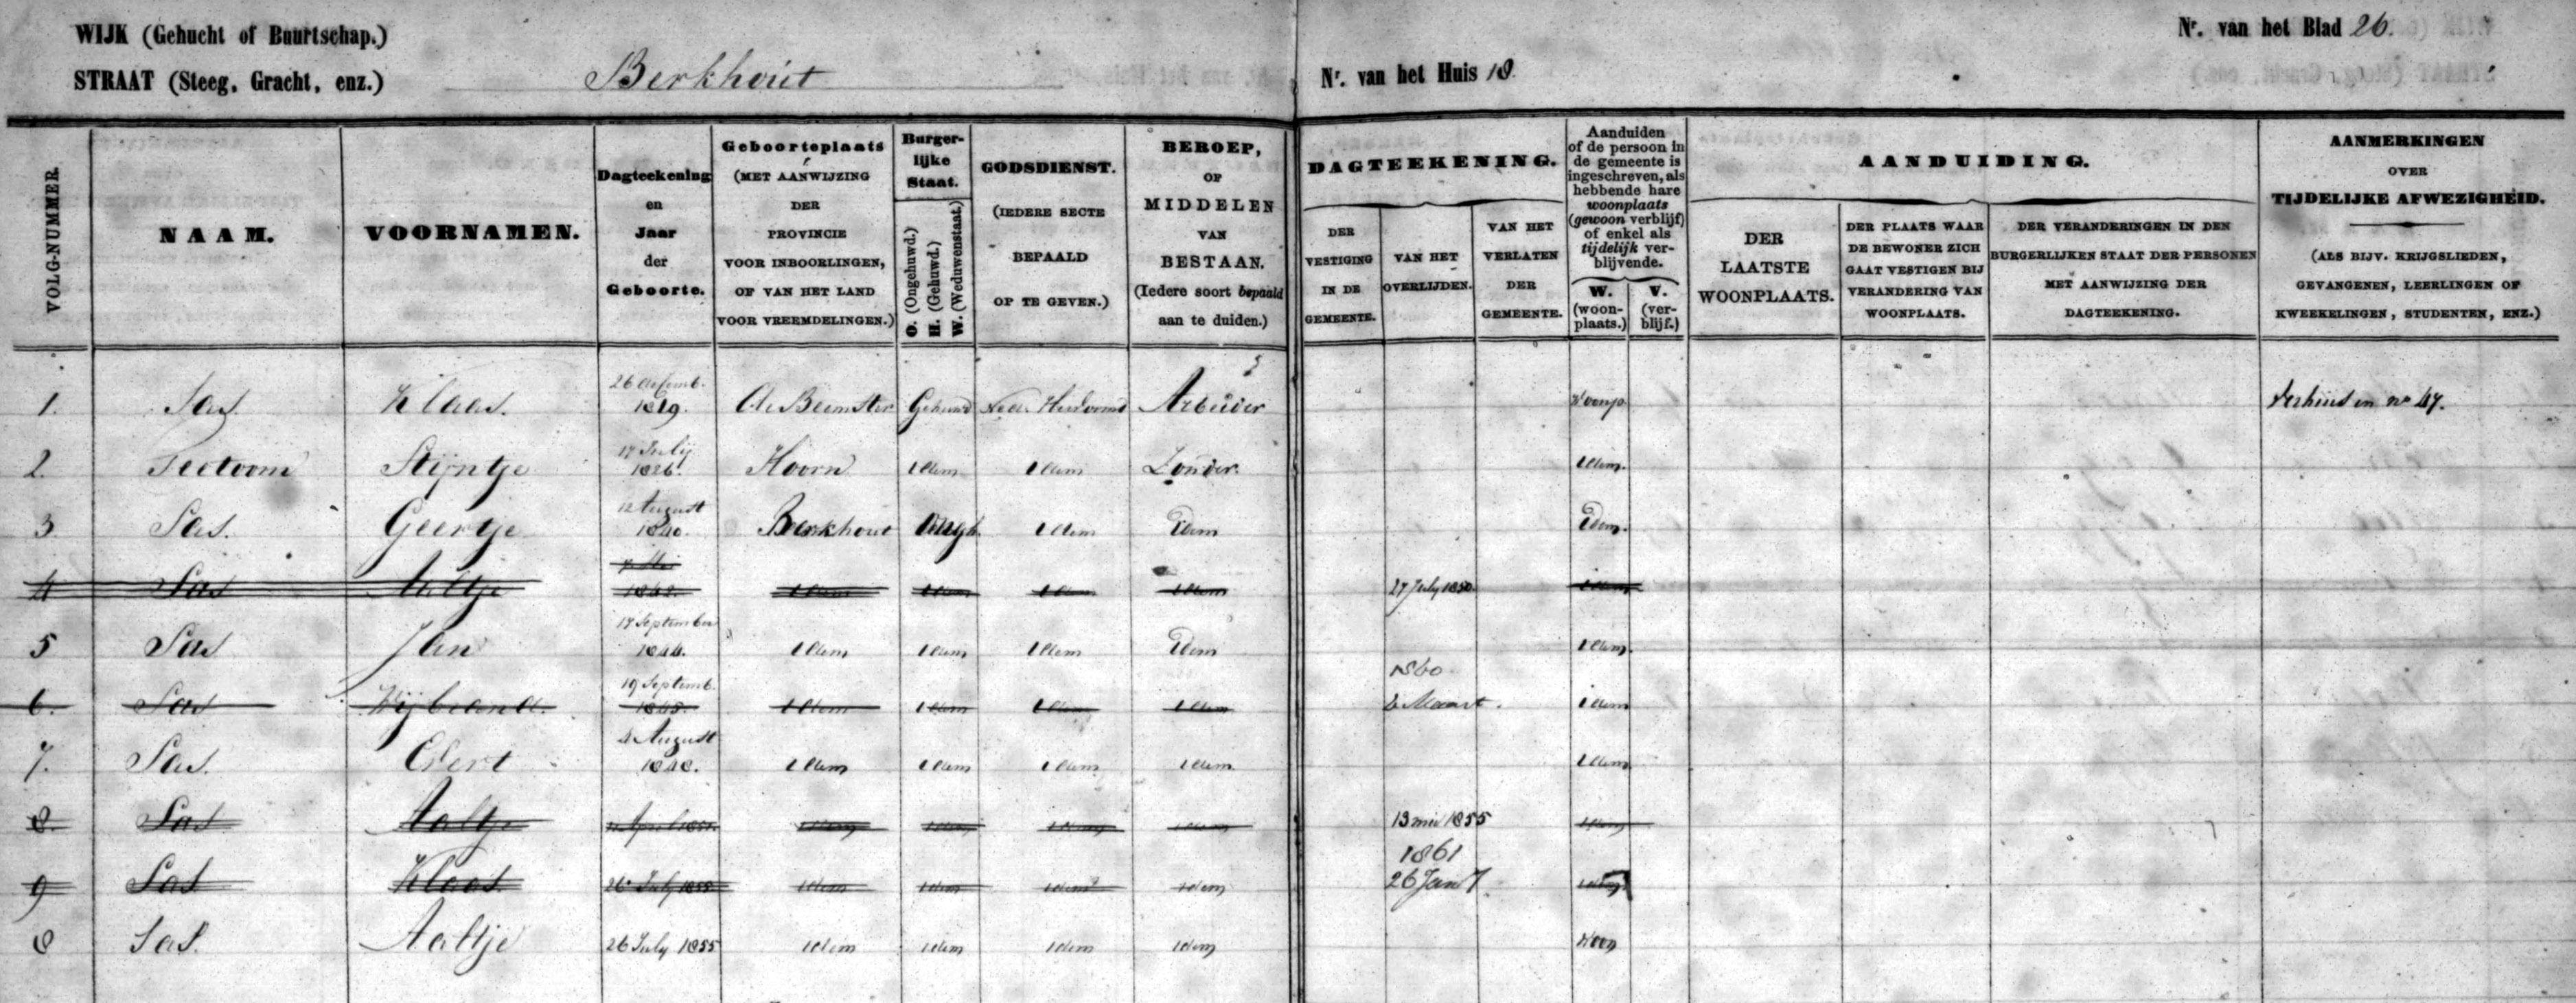 WIJK (Gehucht of Buurtschap.)
STRAAT (Steeg, Gracht, enz.) Berkhout
Nr. van het Huis 18.
Nr. van het Blad 26.
VOLG-NUMMER
NAAM.
VOORNAMEN.
Dagteekening
en
Jaar
der
Geboorte.
Geboorteplaats
(MET AANWIJZING
DER
PROVINCIE
VOOR INBOORLINGEN,
OF VAN HET LAND
VOOR VREEMDELINGEN.)
Burger-
lijke
Staat.
O. (Ongehuwd.)
H. (Gehuwd.)
W. (Weduwenstaat.)
GODSDIENST.
(IEDERE SECTE
BEPAALD
OP TE GEVEN.)
BEROEP,
OF
MIDDELEN
VAN
BESTAAN.
(Iedere soort bepaald
aan te duiden.)
DAGTEEKENING.
DER
VESTIGING
IN DE
GEMEENTE.
VAN HET
OVERLIJDEN.
VAN HET
VERLATEN
DER
GEMEENTE.
Aanduiden
of de persoon in
de gemeente is
ingeschreven, als
hebbende hare
woonplaats
(gewoon verblijf)
of enkel als
tijdelijk ver-
blijvende.
W.
(woon-
plaats.)
V.
(ver-
blijf.)
AANDUIDING.
DER
LAATSTE
WOONPLAATS.
DER PLAATS WAAR
DE BEWONER ZICH
GAAT VESTIGEN BIJ
VERANDERING VAN
WOONPLAATS.
DER VERANDERINGEN IN DEN
BURGERLIJKEN STAAT DER PERSONEN
MET AANWIJZING DER
DAGTEEKENING.
AANMERKINGEN
OVER
TIJDELIJKE AFWEZIGHEID.
(ALS BIJV. KRIJGSLIEDEN,
GEVANGENEN, LEERLINGEN OF
KWEEKELINGEN, STUDENTEN, ENZ.)
1. Sas Klaas. 26 1819. De Beemster Gehuwd Ned. Hervormd Arbeider Woonp. Verhuisd in no 47.
2. Teetoom Stijntje 17 Julij 1826. Hoorn idem idem Zonder. idem.
3 Sas. Geertje 12 August 1840. Berkhout Ongeh. idem Idem Idem.
4 Sas Aaltje 1842. idem idem idem idem 27 July 1850 idem
5 Sas Jan 17 September 1844. idem idem idem Idem idem.
6. Sas Wijbrand. 19 Septemb. idem idem idem idem 1860 2 Maart. idem
7. Sas. Evert 4 August 1848. idem idem idem idem idem
8. Sas Aaltje April idem idem idem idem 13 mei 1855 idem
9 Sas Klaas 26 July idem idem idem idem 1861 26 Jan idem
8 Sas. Aaltje 26 July 1855 idem idem idem idem Woon